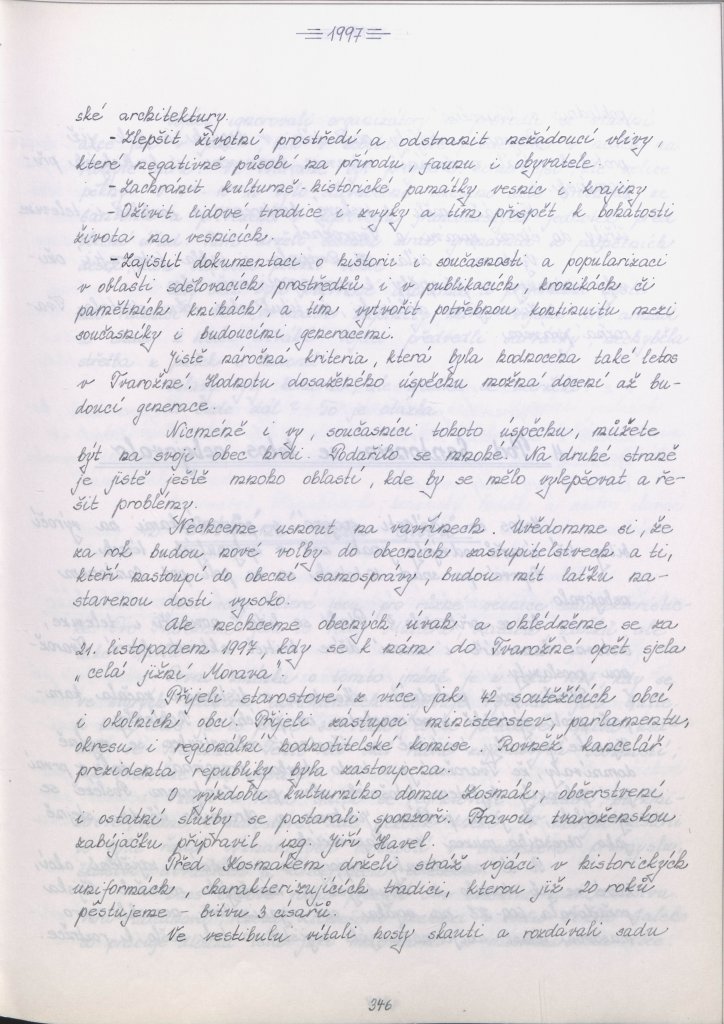 1997
ské architektury.
- Zlepšit životní prostředí a odstranit nežádoucí vlivy,
které negativně působí na přírodu, faunu i obyvatele.
- Zachránit kulturně-historické památky vesnic i krajiny
- Oživit lidové tradice i zvyky a tím přispět k bohatosti
života na vesnicích.
- Zajistit dokumentaci o historii i současnosti a popularizaci
v oblasti sdělovacích prostředků i v publikacích, kronikách či
pamětních knihách, a tím vytvořit potřebnou kontinuitu mezi
současníky i budoucími generacemi.
Jistě náročná kriteria, která byla hodnocena také letos
v Tvarožné. Hodnotu dosaženého úspěchu možná docení až bu-
doucí generace.
Nicméně i vy, současníci tohoto úspěchu, můžete
být na svoji obec hrdi. Podařilo se mnohé. Na druhé straně
je jistě ještě mnoho oblastí, kde by se mělo vylepšovat a ře-
šit problémy.
Nechceme usnout na vavřínech. Uvědomme si, že
za rok budou nové volby do obecních zastupitelstvech a ti,
kteří nastoupí do obecní samosprávy, budou mít laťku na-
stavenou dosti vysoko.
Ale nechceme obecných úvah a ohlédneme se za
21. listopadem 1997, kdy se k nám do Tvarožné opět sjela
„celá jižní Morava".
Přijeli starostové z více jak 42 soutěžících obcí
i okolních obcí. Přijeli zástupci ministerstev, parlamentu,
okresu i regionální hodnotitelské komise. Rovněž kancelář
prezidenta republiky byla zastoupena.
O výzdobu kulturního domu Kosmák, občerstvení
i ostatní služby se postarali sponzoři. Pravou tvaroženskou
zabíjačku připravil ing. Jiří Havel.
Před Kosmákem drželi stráž vojáci v historických
uniformách, charakterizujících tradici, kterou již 20 roků
pěstujeme - bitvu 3 císařů.
Ve vestibulu vítali hosty skauti a rozdávali sadu
346